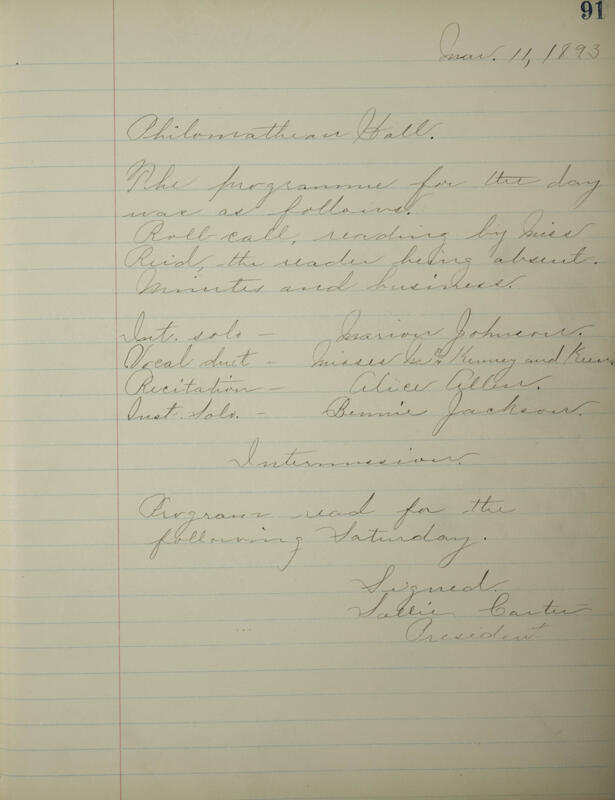 91
Mar. 11, 1893
Philomathean Hall.
The programme for the day
was as follows.
Roll-call, reading by Miss
Reid, the reader being absent.
Minutes and business.
Int. solo - Marion Johnson.
Vocal duet - Misses McKinney and Keen.
Recitation - Alice Allen.
Inst. Solo. - Bennie Jackson.
Intermission.
Program read for the
following Saturday.
Signed.
Sallie Carter
President